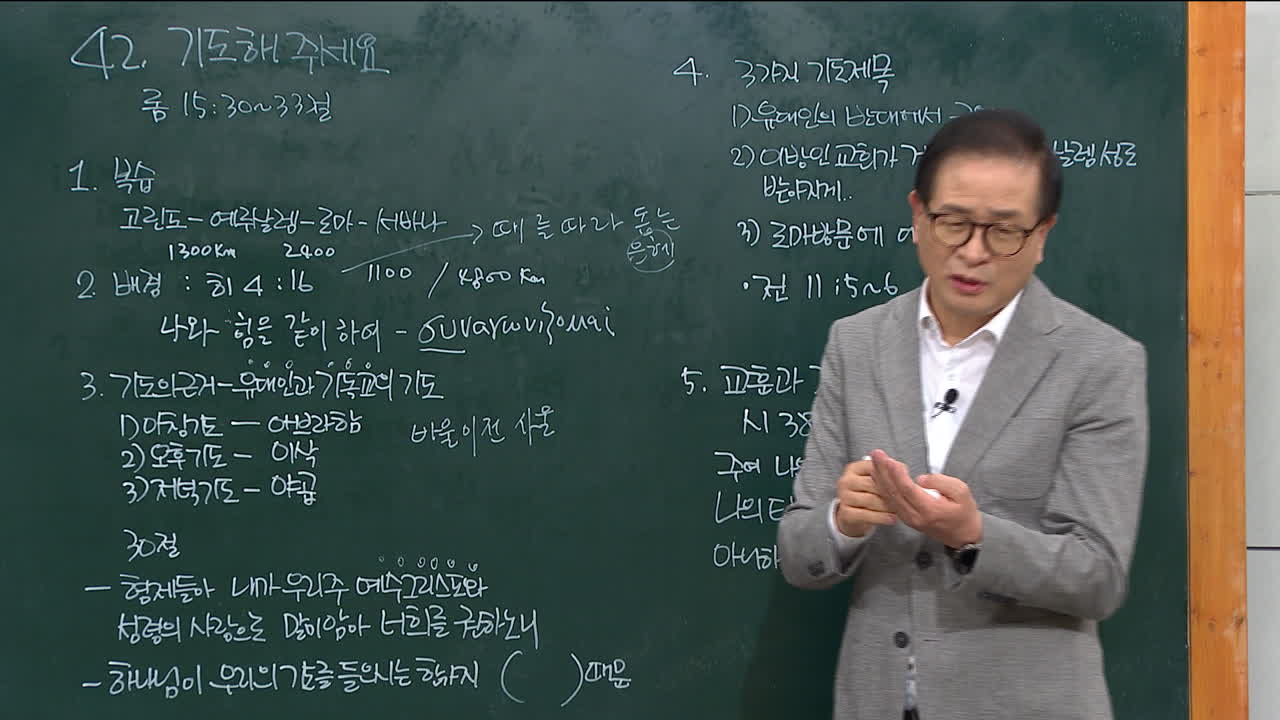 42. 기도해 주세요
롬 15:30~33절
1. 복습
고린도-예루살렘-로마-서바나 → 때를 따라 돕는 은혜
1300Km 2400 1100 / 4800 Km
2. 배경 : 히 4:16
나와 힘을 같이 하여 -
3. 기도의근거-유대인과 기독교의 기도
1)아침기도 - 아브라함
바울이전 사울
2)오후기도 - 이삭
3)저녁기도 - 야곱
30절
- 형제들아 내가 우리주 예수그리스도와
성령의 사랑으로 말미암아 너희를 권하노니
- 하나님이 우리의 기도를 들으시는 한가지 ( )때문
4. 3가지 기도제목
1)유대인의 반대에서
2)이방인교회가 살렘성도
받아지게..
3) 로마방문에
·전 11:5~6
5. 교훈과
시 38
주여
나의
아니하